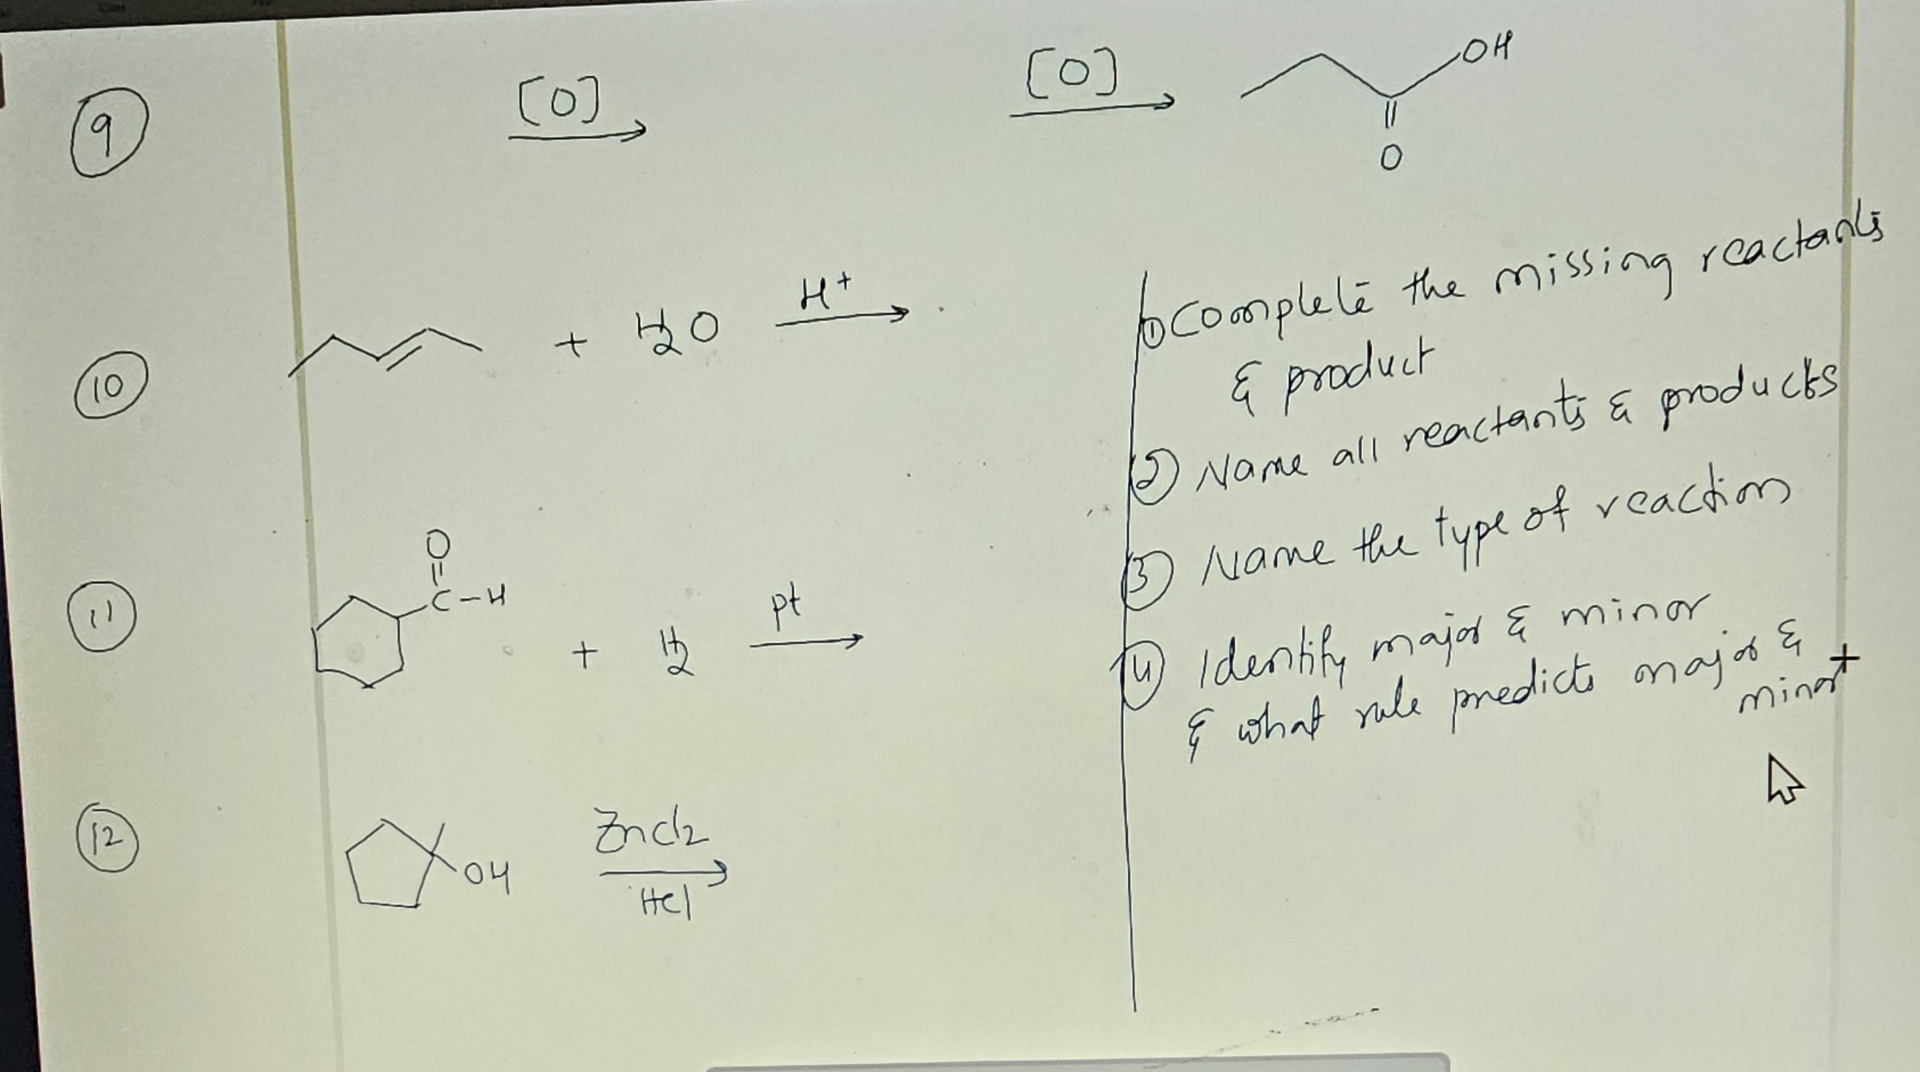 9
[O]
[O]
OH
O
10
+ H2O
H+
① Complete the missing reactants
& product
② Name all reactants & products
③ Name the type of reaction
④ Identify major & minor
& what rule predicts major &
minor
11
O
C-H
+ H2
pt
12
OH
ZnCl2
HCl